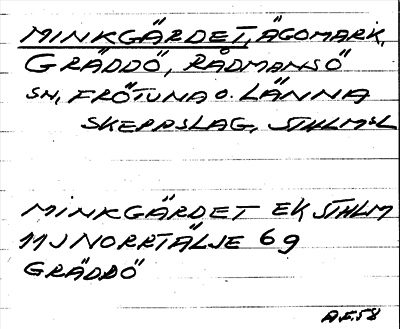 MINKGÄRDET, ÄGOMARK,
GRÄDDÖ, RÅDMANSÖ
SN, FRÖTUNA O. LÄNNA
SKEPPSLAG, STHLMSL
MINKGÄRDET EK STHLM
11J NORRTÄLJE 6g
GRÄDDÖ
A.F.58